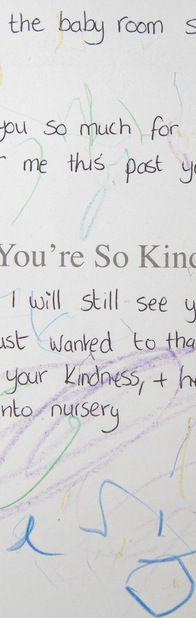 the baby room s
you so much for
r me this past y
You're So Kind
I will still see y
ust wanted to tha
your kindness, + h
nto nursery